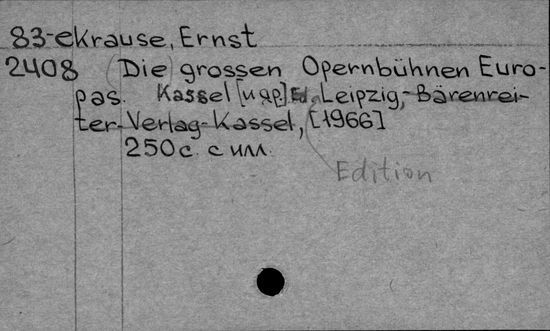 83-e Krause, Ernst
2408 (Die) grossen Opernbühnen Euro-
pas. Kassel [и др] Ed. Leipzig, Bärenrei-
ter-Verlag-Kassel, [1966]
250 с. с илл.
Edition